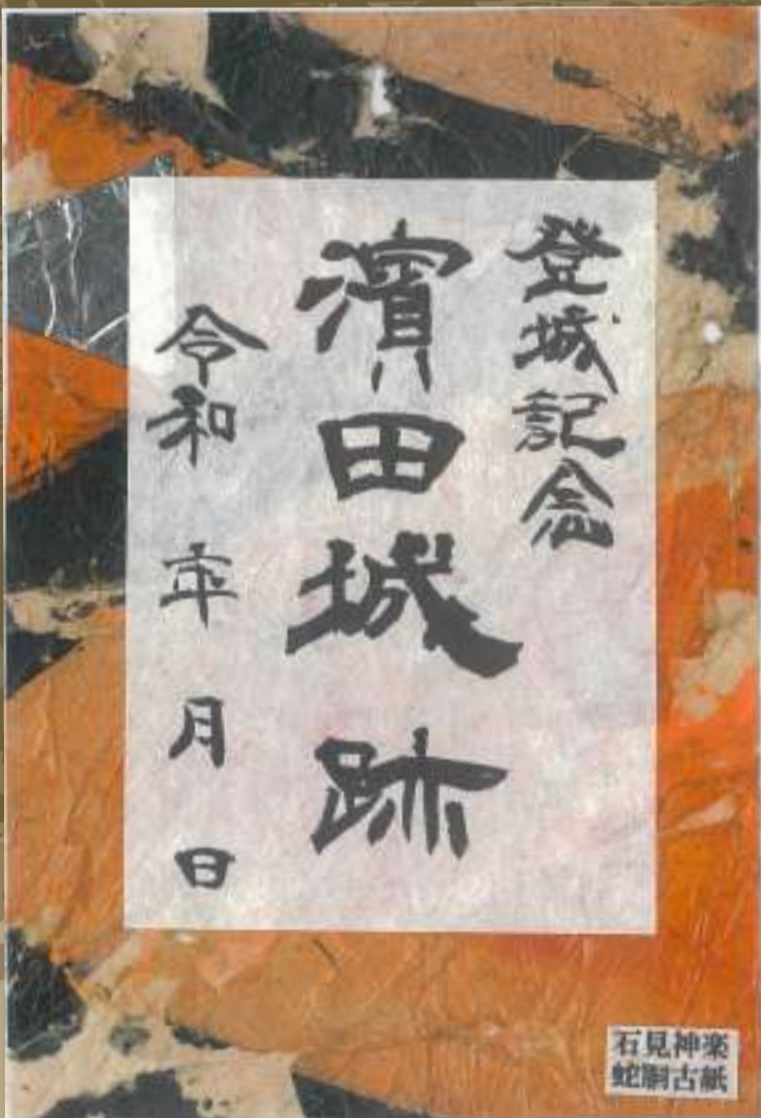 登城記念
濱田城跡
令和 年 月 日
石見神楽
蛇胴古紙